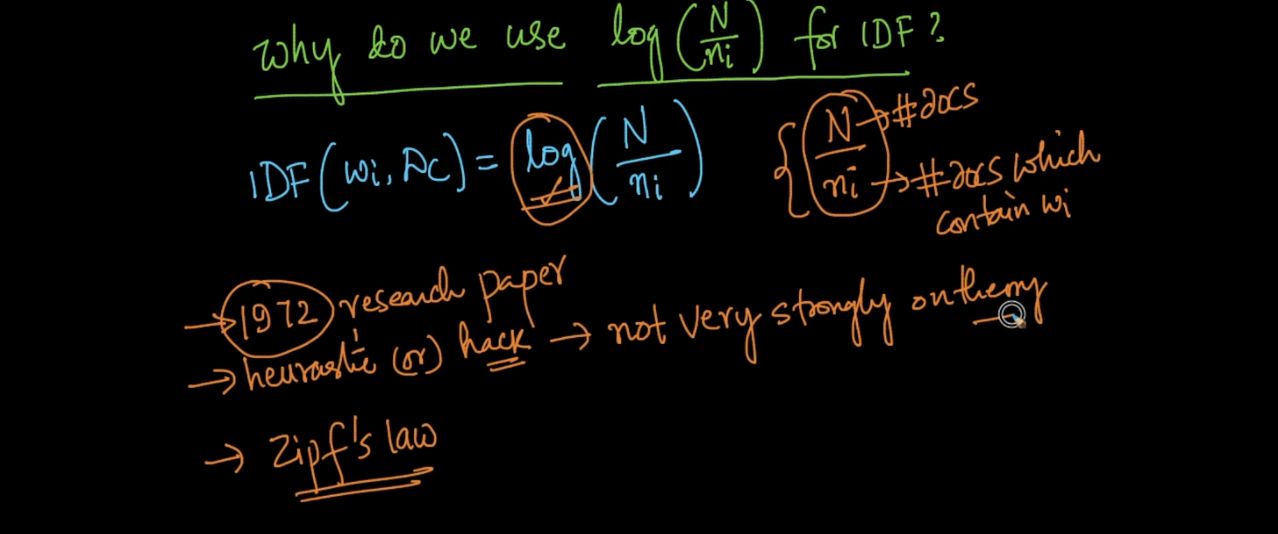 Why do we use log(N/ni) for IDF?
IDF(wi, Dc) = log(N/ni) { N/ni
N → #docs
ni → #docs which contain wi
→ 1972 research paper
→ heurastic (or) hack → not very strongly on theory
→ Zipf's law